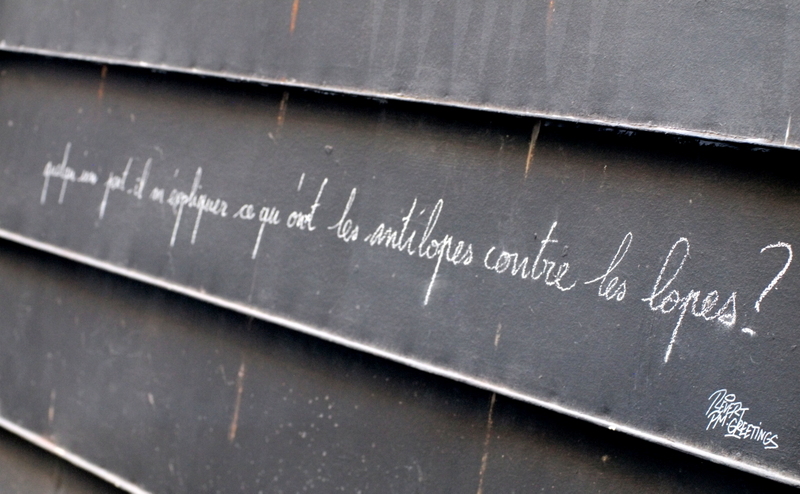 quelqu'un peut-il m'expliquer ce qu'ont les antilopes contre les lopes?
PM-GREETINGS